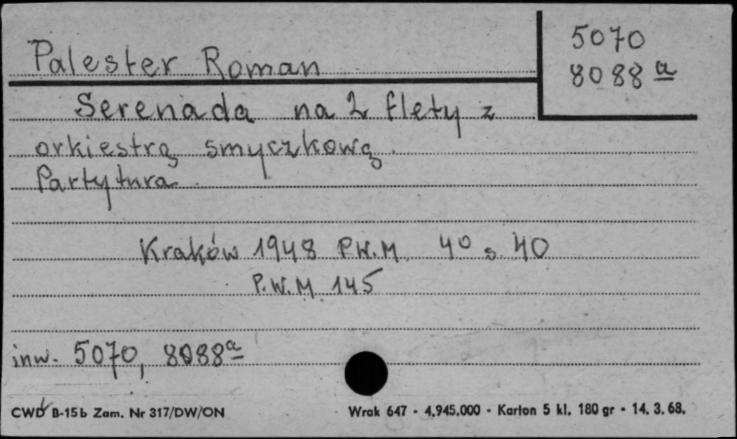 5070
8088 a
Palester Roman
Serenada na 2 flety z
orkiestrą smyczkową.
Partytura.
Kraków 1948 P.W.M. 4° s. 40
P.W.M 145
inw. 5070, 8088a
CWD B-15b Zam. Nr 317/DW/ON
Wrak 647 - 4.945.000 - Karton 5 kl. 180 gr - 14. 3. 68.